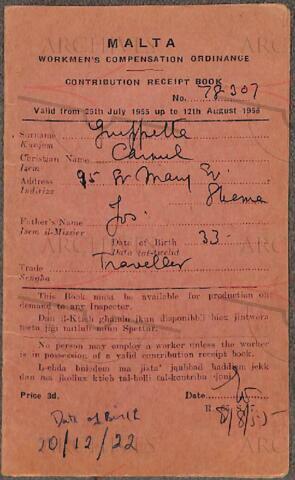 MALTA
WORKMEN'S COMPENSATION ORDINANCE
CONTRIBUTION RECEIPT BOOK
No. 78307
Valid from 25th July 1955 up to 12th August 1956
Surname
Kunjom
Christian Name Carmel
Isem
Address 95 St Mary St.
Indirizz Sliema
Father's Name Jos.
Isem il-Missier
Date of Birth 33-
Data tat-twelid
Trade Traveller
Sengħa
This Book must be available for production on
demand to any Inspector.
Dan il-Ktieb għandu jkun disponibbli biex jintwera
meta jiġi mitlub minn Spettur.
No person may employ a worker unless the worker
is in possession of a valid contribution receipt book.
L-ebda bniedem ma jista' jqabbad ħaddiem jekk
dan ma jkollux ktieb tal-bolli tal-kontribuzzjoni.
Price 3d. Date
Date of Birth
20/12/22